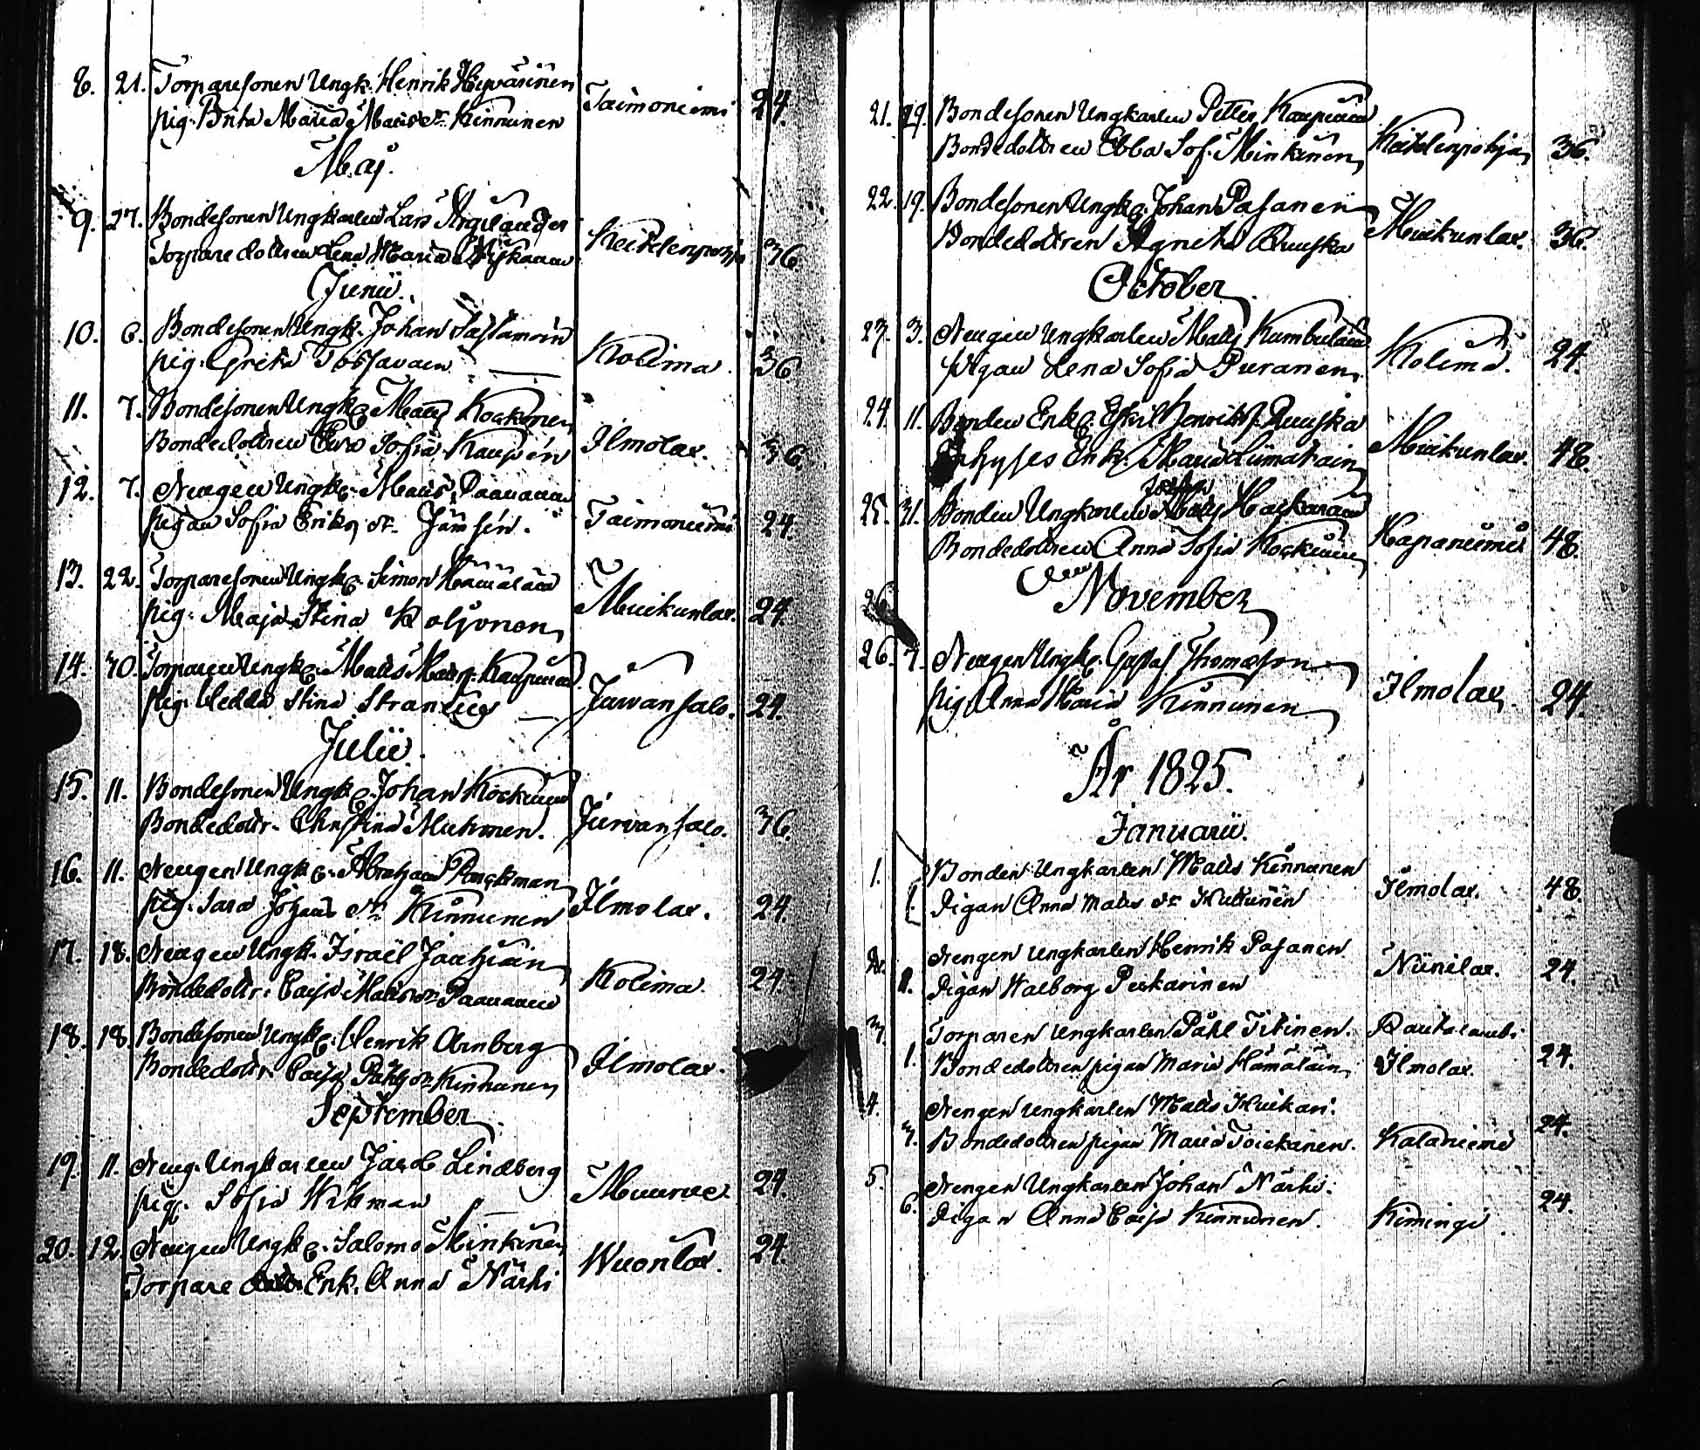 8. 21. Torparesonen Ungk. Henrik Hyvärinen
pig. Brita Maria Matsdr Kinnunen Taimoniemi 24.
Maj.
9. 27. Bondesonen Ungkarlen Lars Argilander
Torparedottren Lena Maria Keitelenpohja 36
Junii.
10. 6. Bondesonen Ungk. Johan Sastamoin
pig. Greta Tossavain Kolima. 36
11. 7. Bondesonen Ungk. Matts Kockonen
Bondedottren Eva Sofia Kaupin Ilmolax. 36
12. 7. Drengen Ungk. Matts Paananen
pigan Sofia Eriks dr Jämsén. Taimoniemi 24.
13. 22. Torparesonen Ungk. Simon Hämäläin
pig. Maja Stina Koljonen Muikunlax. 24.
14. 30. Torparen Ungk. Matts Matss. Kaupinen
pig. Hedda Stina Jurvansalo. 24.
Julii.
15. 11. Bondesonen Ungk. Johan Kockonen
Bondedottr. Christina Muhonen. Jurvansalo. 36.
16. 11. Drengen Ungk. Abraham Rackman
pig. Sara Johans dr Kinnunen Ilmolax. 24.
17. 18. Drengen Ungk. Israël Jaatjnäin
Bondedottr. Caisa Matsdr Paananen Kolima. 24.
18. 18. Bondesonen Ungk. Henrik Arnberg
Bondedottr. Caisa Påhlsdr Kinnunen Ilmolax.
September.
19. 11. Dreng. Ungkarlen Jacob Lindberg
pig. Sofia Wikman Muurue 24.
20. 12. Drengen Ungk. Salomo Minkinen
Torpare Enk. Anna Närhi Wuonlax. 24.
21. 29. Bondesonen Ungkarlen Petter Kaupinen
Bondedottren Ebba Sof. Minkinen Keitelenpohja 36.
22. 19. Bondesonen Ungk. Johan Pasanen
Bondedottren Agneta Ruuska Muikunlax. 36.
October
23. 3. Drengen Ungkarlen Matts Kumbulain
pigan Lena Sofia Puranen Kolima. 24.
24. 11. Bonden Enkl. Eskil Henriks. Ruuska
Enk. Maria Liimatain Muikunlax. 48.
25. 31. Bonden Ungkarlen Johan Matts Hackarain
Bondedottren Anna Sofia Kockonen Hapaniemi 48.
November
26. 7. Drengen Ungk. Gustaf Thomasson
pig. Anna Maria Kinnunen Ilmolax 24.
År 1825.
Januarii.
1. Bonden Ungkarlen Matts Kinnunen
1. Pigan Anna Mats dr Huttunen Ilmolax. 48.
2. Drengen Ungkarlen Henrik Pasanen
Pigan Walborg Peckarinen Niinilax. 24.
3. Torparen Ungkarlen Påhl Titinen. Rautalambi
1. Bondedottren pigan Maria Hämäläin Ilmolax. 24.
4. Drengen Ungkarlen Matts Kuikari.
Bondedottren pigan Maria Toickanen. Kalaniemi 24.
5. Drengen Ungkarlen Johan Närhi.
6. Pigan Anna Caisa Kinnunen. Kimingi 24.